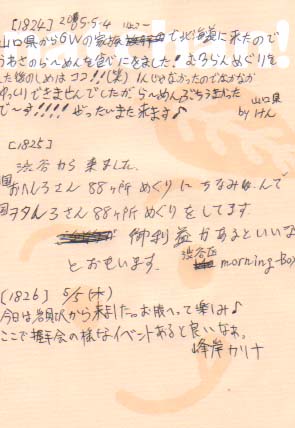 [1824] 2005.5.4
山口県からGWの家族旅行で北海道に来たので
うわさのらーめんを食べにをました！むろらんめぐりを
した後のしめはココ!!(笑)
ゆっくりできませんでしたがらーめんごちうまかった
で〜す!!!! ぜったいまた来ます♪ 山口県
by けん
[1825]
渋谷から来ました。
四国おへんろさん88ヶ所めぐりにちなみまして
ヲタんろさん88ヶ所めぐりをしてます。
御利益があるといいな
とおもいます。渋谷区 morning-Boy
[1826] 5/5(木)
今日は岩見沢から来ましたっお腹へって楽しみ♪
ここで握手会の様なイベントあると良いなぁ。
峰岸カリナ